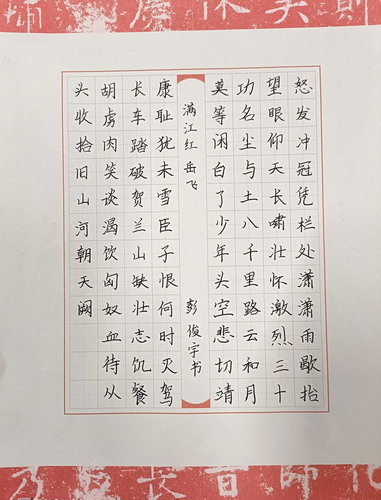 怒发冲冠凭栏处潇潇雨歇抬
望眼仰天长啸壮怀激烈三十
功名尘与土八千里路云和月
莫等闲白了少年头空悲切靖
满江红 岳飞 彭俊宇书
康耻犹未雪臣子恨何时灭驾
长车踏破贺兰山缺壮志饥餐
胡虏肉笑谈渴饮匈奴血待从
头收拾旧山河朝天阙